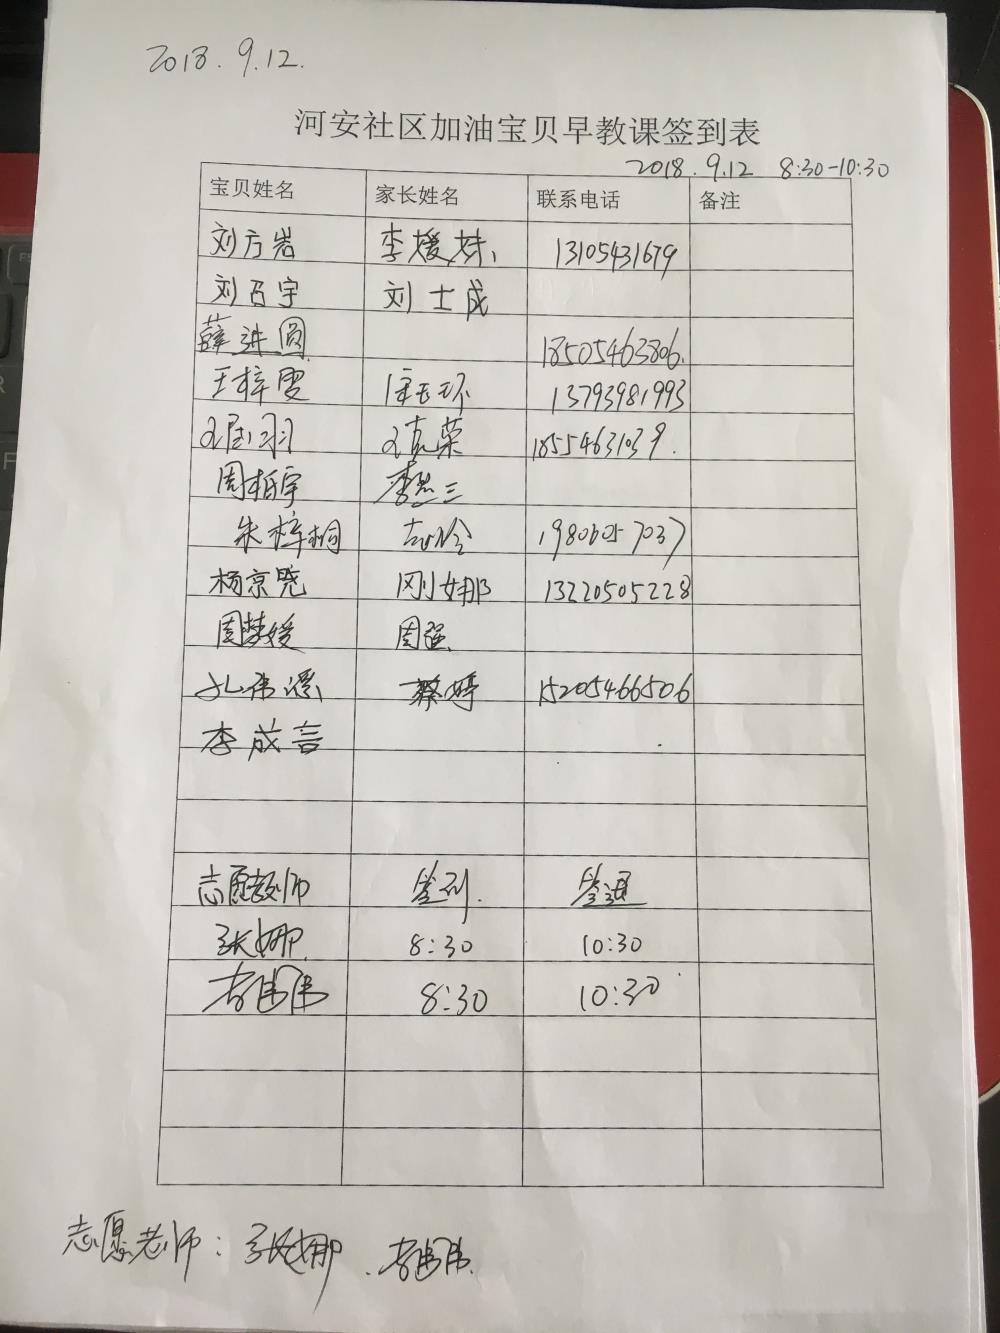 2018.9.12.
河安社区加油宝贝早教课签到表
2018.9.12 8:30-10:30
宝贝姓名 家长姓名 联系电话 备注
刘方岩 李媛妹 13105431679
刘召宇 刘士成
薛进圆 18505463806.
王梓雯 环 13793981993
羽 荣 18554631039.
周栢宇 李 三
朱梓桐 志玲 19806057037
杨京晓 刚娜 13220505228
周梦媛 周强
孔伟溪 蔡婷 15205466506
李成言
志愿教师 签到. 签退
张娜 8:30 10:30
李伟伟 8:30 10:30
志愿老师: 张娜. 李伟伟